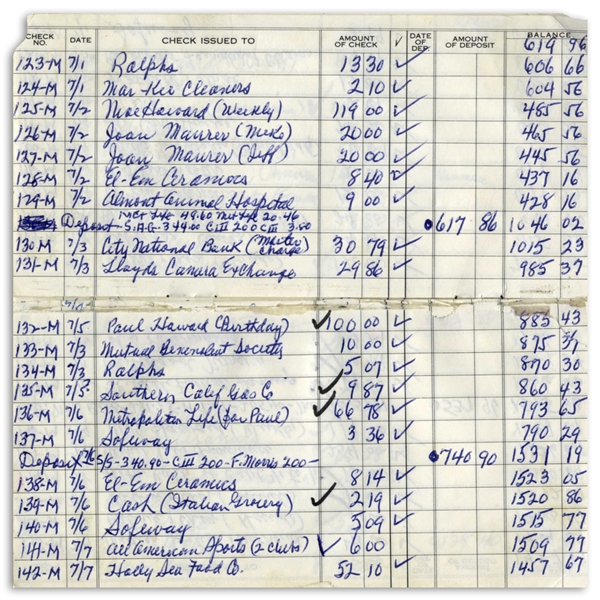 CHECK NO. DATE CHECK ISSUED TO AMOUNT OF CHECK ✓ DATE OF DEP. AMOUNT OF DEPOSIT BALANCE
619 96
123-M 7/1 Ralphs 13 30 ✓ 606 66
124-M 7/1 Cleaners 2 10 ✓ 604 56
125-M 7/2 Moe Howard (Weekly) 119 00 ✓ 485 56
126-M 7/2 Joan Maurer (Mike) 20 00 ✓ 465 56
127-M 7/2 Joan Maurer (Jeff) 20 00 ✓ 445 56
128-M 7/2 El-Em Ceramics 8 40 ✓ 437 16
129-M 7/2 Almont Animal Hospital 9 00 ✓ 428 16
49.60 20.46
Deposit S.A.G. 344.00 C III 200 C III 3.80 617 86 1046 02
130 M 7/3 City National Bank (Master Charge) 30 79 ✓ 1015 23
131-M 7/3 Lloyds Camera Exchange 29 86 ✓ 985 37
132-M 7/5 Paul Howard (Birthday) ✓ 100 00 ✓ 885 43
133-M 7/3 Mutual Benevolent Society 10 00 ✓ 875 37
134-M 7/3 Ralphs 5 07 ✓ 870 30
135-M 7/5 Southern Calif Gas Co ✓ 9 87 ✓ 860 43
136-M 7/6 Metropolitan Life (for Paul) ✓ 66 78 ✓ 793 65
137-M 7/6 Safeway 3 36 ✓ 790 29
Deposit 7/6 S/S-340.90-C III 200-F. Morris 200- 740 90 1531 19
138-M 7/6 El-Em Ceramics 8 14 ✓ 1523 05
139-M 7/6 Cash (Italian Grocery) ✓ 2 19 ✓ 1520 86
140-M 7/6 Safeway 5 09 ✓ 1515 77
141-M 7/7 All American Sports (2 clubs) ✓ 6 00 1509 77
142-M 7/7 Holly Sea Food Co. 52 10 ✓ 1457 67